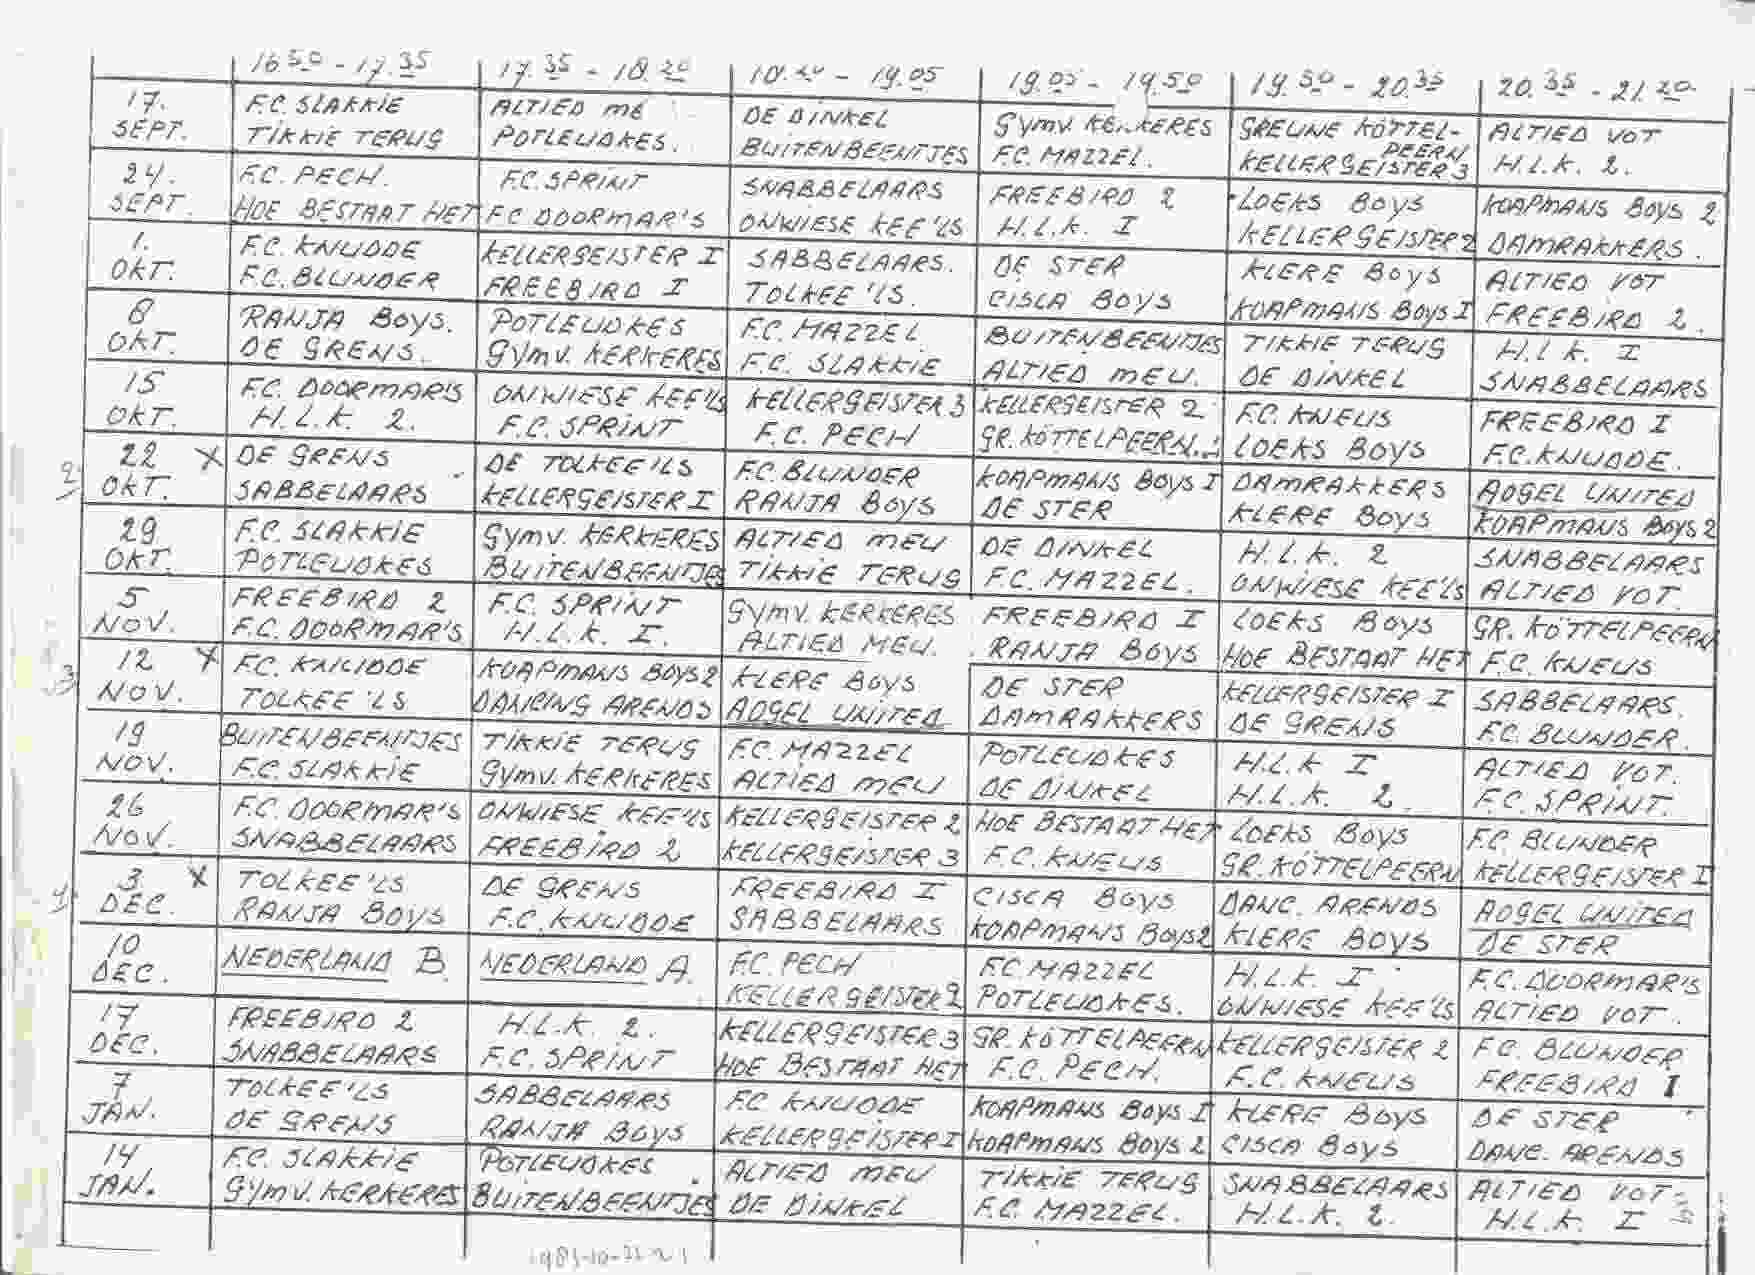 16.50 - 17.35 17.35 - 18.20 18.20 - 19.05 19.05 - 19.50 19.50 - 20.35 20.35 - 21.20
17. F.C. SLAKKIE ALTIED ME DE DINKEL Gymv. KERKERES GREUNE KÖTTEL- ALTIED VOT
PEERN
SEPT. TIKKIE TERUG POTLEUDKES. BUITENBEENTJES F.C. MAZZEL. KELLERGEISTER 3 H.L.K. 2.
24. F.C. PECH. F.C. SPRINT SNABBELAARS FREEBIRD 2 LOEKS BOYS KOAPMANS BOYS 2
SEPT. HOE BESTAAT HET F.C DOORMAR'S ONWIESE KEE'LS H.L.K. I KELLERGEISTER 2 DAMRAKKERS.
1. F.C. KNUDDE KELLERGEISTER I SABBELAARS. DE STER KLERE BOYS ALTIED VOT
OKT. F.C. BLUNDER FREEBIRD I TOLKEE'LS. CISCA BOYS KOAPMANS BOYS I FREEBIRD 2.
8 RANJA BOYS. POTLEUDKES F.C. MAZZEL BUITENBEENTJES TIKKIE TERUG H.L.K. I
OKT. DE GRENS. Gymv. KERKERES F.C. SLAKKIE ALTIED MEU. DE DINKEL SNABBELAARS
15 F.C. DOORMAR'S ONWIESE KEE'LS KELLERGEISTER 3 KELLERGEISTER 2 F.C. KNEUS FREEBIRD I
OKT. H.L.K. 2. F.C. SPRINT F.C. PECH GR. KÖTTELPEERN. LOEKS BOYS F.C. KNUDDE.
22 X DE GRENS DE TOLKEE'LS F.C. BLUNDER KOAPMANS BOYS I DAMRAKKERS AOGEL UNITED
2 OKT. SABBELAARS KELLERGEISTER I RANJA BOYS DE STER KLERE BOYS KOAPMANS BOYS 2
29 F.C. SLAKKIE Gymv. KERKERES ALTIED MEU DE DINKEL H.L.K. 2 SNABBELAARS
OKT. POTLEUDKES BUITENBEENTJES TIKKIE TERUG F.C. MAZZEL. ONWIESE KEE'LS ALTIED VOT.
5 FREEBIRD 2 F.C. SPRINT Gymv. KERKERES FREEBIRD I LOEKS BOYS GR. KÖTTELPEERN
NOV. F.C. DOORMAR'S H.L.K. I. ALTIED MEU. RANJA BOYS HOE BESTAAT HET F.C. KNEUS
12 X F.C. KNUDDE KOAPMANS BOYS 2 KLERE BOYS DE STER KELLERGEISTER I SABBELAARS.
3 NOV. TOLKEE'LS DANCING ARENDS AOGEL UNITED DAMRAKKERS DE GRENS F.C. BLUNDER.
19 BUITENBEENTJES TIKKIE TERUG F.C. MAZZEL POTLEUDKES H.L.K I ALTIED VOT.
NOV. F.C. SLAKKIE Gymv. KERKERES ALTIED MEU DE DINKEL H.L.K. 2. F.C. SPRINT.
26 F.C. DOORMAR'S ONWIESE KEE'LS KELLERGEISTER 2 HOE BESTAAT HET LOEKS BOYS F.C. BLUNDER
NOV. SNABBELAARS FREEBIRD 2 KELLERGEISTER 3 F.C. KNEUS GR. KÖTTELPEERN KELLERGEISTER I
3 X TOLKEE'LS DE GRENS FREEBIRD I CISCA BOYS DANC. ARENDS AOGEL UNITED
4 DEC. RANJA BOYS F.C. KNUDDE SABBELAARS KOAPMANS BOYS 2 KLERE BOYS DE STER
10 NEDERLAND B. NEDERLAND A. F.C. PECH F.C MAZZEL H.L.K. I F.C. DOORMAR'S
DEC. KELLERGEISTER 2 POTLEUDKES. ONWIESE KEE'LS ALTIED VOT.
17 FREEBIRD 2 H.L.K. 2. KELLERGEISTER 3 GR. KÖTTELPEERN KELLERGEISTER 2 F.C. BLUNDER
DEC. SNABBELAARS F.C. SPRINT HOE BESTAAT HET F.C. PECH. F.C. KNEUS FREEBIRD I
7 TOLKEE'LS SABBELAARS F.C KNUDDE KOAPMANS BOYS I KLERE BOYS DE STER
JAN. DE GRENS RANJA BOYS KELLERGEISTER I KOAPMANS BOYS 2 CISCA BOYS DANC. ARENDS
14 F.C. SLAKKIE POTLEUDKES ALTIED MEU TIKKIE TERUG SNABBELAARS ALTIED VOT
JAN. Gymv. KERKERES BUITENBEENTJES DE DINKEL F.C. MAZZEL. H.L.K. 2. H.L.K. I